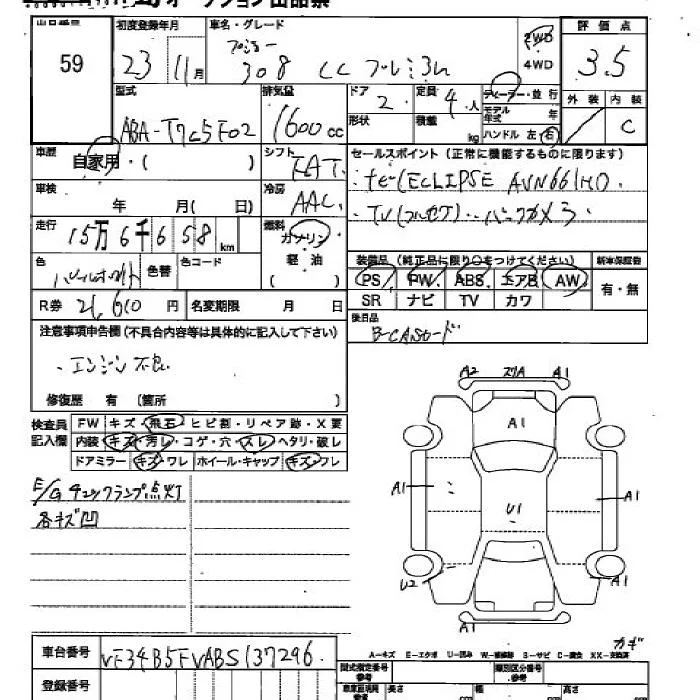 オークション出品票
出品番号 59
初度登録年月 23 11月
車名・グレード プジョー 308 CC プレミアム
2WD
4WD
評価点 3.5
外装 内装 C
型式 ABA-T7C5F02
排気量 1600 cc
ドア 2 形状
定員 4人 積載 kg
ディーラー・並行
モデル年式 年
ハンドル 左・右
車歴 自家用・( )
シフト FAT
セールスポイント (正常に機能するものに限ります)
ECLIPSE AVN661HD
・TV(フルセグ)・バックカメラ
車検 年 月( 日)
冷房 AAC
走行 15万6千658km
燃料 ガソリン
軽油
( )
色 パールホワイト 色替 色コード
装備品 (純正品に限り○をつけてください) 新車保証書
PS PW ABS エアB AW 有・無
SR ナビ TV カワ
R券 円 名変期限 月 日
後日品
B-CASカード
注意事項申告欄 (不具合内容等は具体的に記入して下さい)
・エンジン不良
修復歴 有 (箇所 )
検査員記入欄 FW キズ・飛石・ヒビ割・リペア跡・X要
内装 キズ・汚レ・コゲ・穴・スレ・ヘタリ・破レ
ドアミラー キズ・ワレ ホイール・キャップ キズ・フレ
E/Gチェックランプ点灯
各キズ凹
A2 スリA A1
A1
A1 A1
U1
U2 A1
A1
カギ
A-キズ E-エクボ U-凹み W-補修跡 S-サビ C-腐食 XX-交換済
車台番号 VF34B5FVABS137296
登録番号
型式指定番号 類別区分番号
長さ cm 幅 cm 高さ cm